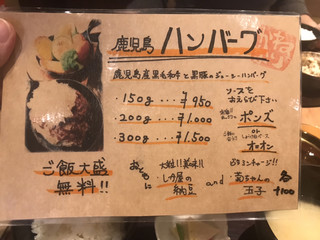 鹿児島 ハンバーグ
鹿児島産黒毛和牛と黒豚のジューシーハンバーグ
・150g ... ¥950
・200g ... ¥1,000
・300g ... ¥1,500
ソースを
お選び下さい
ポンズ
or
オニオン
ご飯大盛
無料!!
おともに
大粒!!美味!!
しか屋の
納豆
and
菊ちゃんの
玉子
各
+100